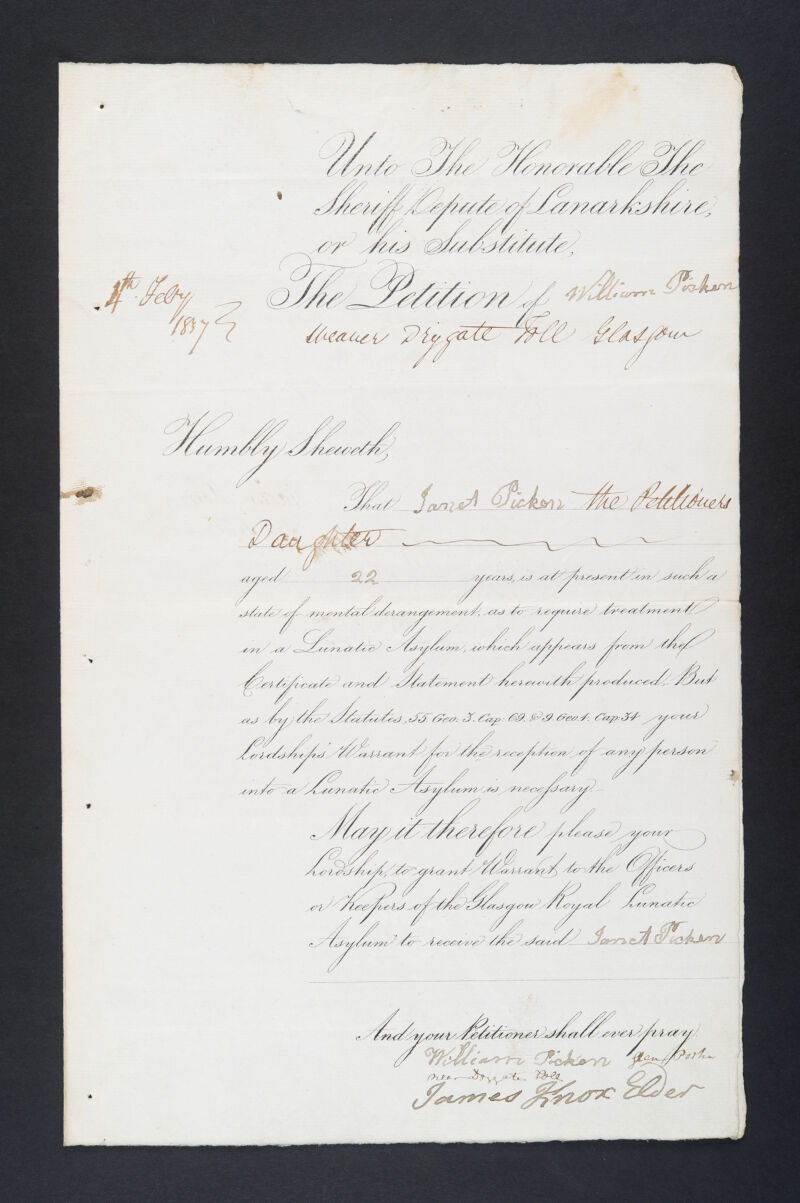 Unto The Honorable The
Sheriff Depute of Lanarkshire,
or his Substitute,
The Petition of William Picken
4th Feby
1837
Weaver Drygate Toll Glasgow
Humbly Sheweth,
That Janet Picken the Petitioners
Daughter
aged 22 years, is at present in such a
state of mental derangement, as to require treatment
in a Lunatic Asylum, which appears from the
Certificate and Statement herewith produced. But
as by the Statutes, 55 Geo. 3. Cap. 69. & 9 Geo. 4. Cap. 34 your
Lordship's Warrant for the reception of any person
into a Lunatic Asylum is necessary
May it therefore please your
Lordship, to grant Warrant to the Officers
or Keepers of the Glasgow Royal Lunatic
Asylum to receive the said Janet Picken
And your Petitioner shall ever pray.
William Picken
near Drygate Toll
James Knox Elder